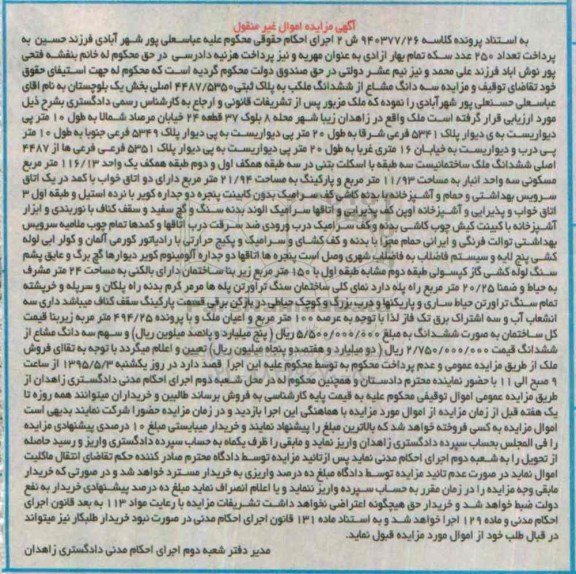 آگهی مزایده اموال غیر منقول
به استناد پرونده کلاسه ۹۴۰۳۷۷/۲۶ ش ۲ اجرای احکام حقوقی محکوم علیه عباسعلی پور شهر آبادی فرزند حسین به
پرداخت تعداد ۲۵۰ عدد سکه تمام بهار ازادی به عنوان مهریه و نیز پرداخت هزینه دادرسی در حق محکوم له خانم بنفشه فتحی
پور نوش اباد فرزند علی محمد و نیز نیم عشر دولتی در حق صندوق دولت محکوم گردیده است که محکوم له جهت استیفای حقوق
خود تقاضای توقیف و مزایده سه دانگ مشاع از ششدانگ ملکب به پلاک ثبتی ۴۴۸۷/۵۳۵۰ اصلی بخش یک بلوچستان به نام اقای
عباسعلی حسنعلی پور شهرآبادی را نموده که ملک مزبور پس از تشریفات قانونی و ارجاع به کارشناس رسمی دادگستری بشرح ذیل
مورد ارزیابی قرار گرفته است ملک واقع در زاهدان زیبا شهر محله ۸ بلوک ۳۷ قطعه ۲۴ خیابان مرصاد شمالا به طول ۱۰ متر پی
دیواریست به ی دیوار پلاک ۵۳۴۱ فرعی شرقا به طول ۲۰ متر پی دیواریست به پی دیوار پلاک ۵۳۴۹ فرعی جنوبا به طول ۱۰ متر
پی درب و دیواریست به خیابان ۱۶ متری غربا به طول ۲۰ متر پی دیواریست به پی دیوار پلاک ۵۳۵۱ فرعی فرعی ها از ۴۴۸۷
اصلی ششدانگ ملک ساختمانیست سه طبقه با اسکلت بتنی در سه طبقه همکف اول و دوم طبقه همکف یک واحد ۱۱۶/۱۳ متر مربع
مسکونی سه واحد انبار به مساحت ۱۱/۹۳ متر مربع و پارکینگ به مساحت ۲۱/۹۴ متر مربع دارای دو اتاق خواب با کمد در یک اتاق
سرویس بهداشتی و حمام و آشپزخانه با بدنه کاشی کف سرامیک بدون کابینت پنجره دو جداره کویر با نرده استیل و طبقه اول ۳
اتاق خواب و پذیرایی و آشپزخانه اوپن کف پذیرایی و اتاقها سرامیک الوند بدنه سنگ و گچ سفید و سقف کناف با نوربندی و ابزار
آشپزخانه با کبینت کیش چوب کاشی بدنه و کف سرامیک درب ورودی ضد سرقت درب اتاقها و کمدها تمام چوب ملامینه سرویس
بهداشتی توالت فرنگی و ایرانی حمام مجزا با بدنه و کف کشای و سرامیک و پکیج حرارتی با رادیاتور کورمی آلمان و کولر ابی لوله
کشی پنج لایه و سیستم فاضلاب به فاضلاب شهری وصل است پنجره ها اتاقها دو جداره آلومینوم کویر دیوارها گچ برگ و عایق پشم
سنگ لوله کشی گاز کپسولی طبقه دوم مشابه طبقه اول با ۱۵۰ متر مربع زیر بنا ساختمان دارای بالکنی به مساحت ۲۴ متر مشرف
به حیاط و ضمنا ۲۰/۲۵ متر مربع راه پله دارد نمای کلی ساختمان سنگ تراورتن پله ها مرمر کرم بدنه راه پلکان و سرپله و خرپشته
تمام سنگ تراورتن حیاط سازی و پاریکنها و درب بزرگ و کوچک حیاطی درازکن برقی قسمت پارکینگ سقف کناف میباشد داری سه
انشعاب آب و سه اشتراک برق تک فاز لذا با توجه به عرصه ۱۰۰ متر مربع و اعیان ملک و با پرونده ۴۹۴/۲۵ متر مربع زیربنا قیمت
کل ساختمان به صورت ششدانگ به مبلغ ۵/۵۰۰/۰۰۰/۰۰۰ ریال ( پنج میلیارد و پانصد میلوین ریال) و سهم سه دانگ مشاع از
ششدانگ قیمت ۲/۷۵۰/۰۰۰/۰۰۰ ریال ( دو میلیارد و هفتصدو پنجاه میلیون ریال) تعیین و اعلام میگردد با توجه به تقاای فروش
ملک از طریق مزایده عمومی و عدم پرداخت محکوم به توسط محکوم علیه این اجرا قصد دارد در روز یکشنبه ۱۳۹۵/۵/۳ از ساعت
۹ صبح الی ۱۱ با حضور نماینده محترم دادستان و همچنین محکوم له در محل شعبه دوم اجرای احکام مدنی دادگستری زاهدان از
طریق مزایده عمومی اموال توقیفی محکوم علیه به قیمت پایه کارشناسی به فروش برساند طالبین و خریداران میتوانند همه روزه تا
یک هفته قبل از زمان مزایده از اموال مورد مزایده با هماهنگی این اجرا بازدید و در زمان مزایده حضورا شرکت نمایند بدیهی است
اموال مزایده به کسی فروخته خواهد شد که بالاترین مبلغ را پیشنهاد نمایند و خریدار میبایستی مبلغ ۱۰ درصدی پیشنهادی مزایده
را فی المجلس بحساب سپرده دادگستری زاهدان واریز نماید و مابقی را ظرف یکماه به حساب سپرده دادگستری واریز و رسید حاصله
از تحویل را به شعبه دوم اجرای احکام مدنی نماید پس ازتائید مزایده توسط دادگاه محترم صادر کننده حکم تقاضای انتقال مالکیت
اموال نماید در صورت عدم تائید مزایده توسط دادگاه مبلغ ده درصد واریزی به خریدار مسترد خواهد شد و در صورتی که خریدار
مابقی وجه مزایده را در زمان مقرر به حساب سپرده واریز ننماید و یا اعلام انصراف نماید مبلغ ده درصد پیشنهادی خریدار به نفع
دولت ضبط خواهد شد و خریدار حق هیچگونه اعتراضی نخواهد داشت تشریفات مزایده با رعایت مواد ۱۱۳ به بعد قانون اجرای
احکام مدنی و ماده ۱۲۹ اجرا خواهد شد و به استناد ماده ۱۳۱ قانون اجرای احکام مدنی در صورت نبود خریدار طلبکار نیز میتواند
در قبال طلب خود از اموال مورد مزایده قبول نماید.
مدیر دفتر شعبه دوم اجرای احکام مدنی دادگستری زاهدان